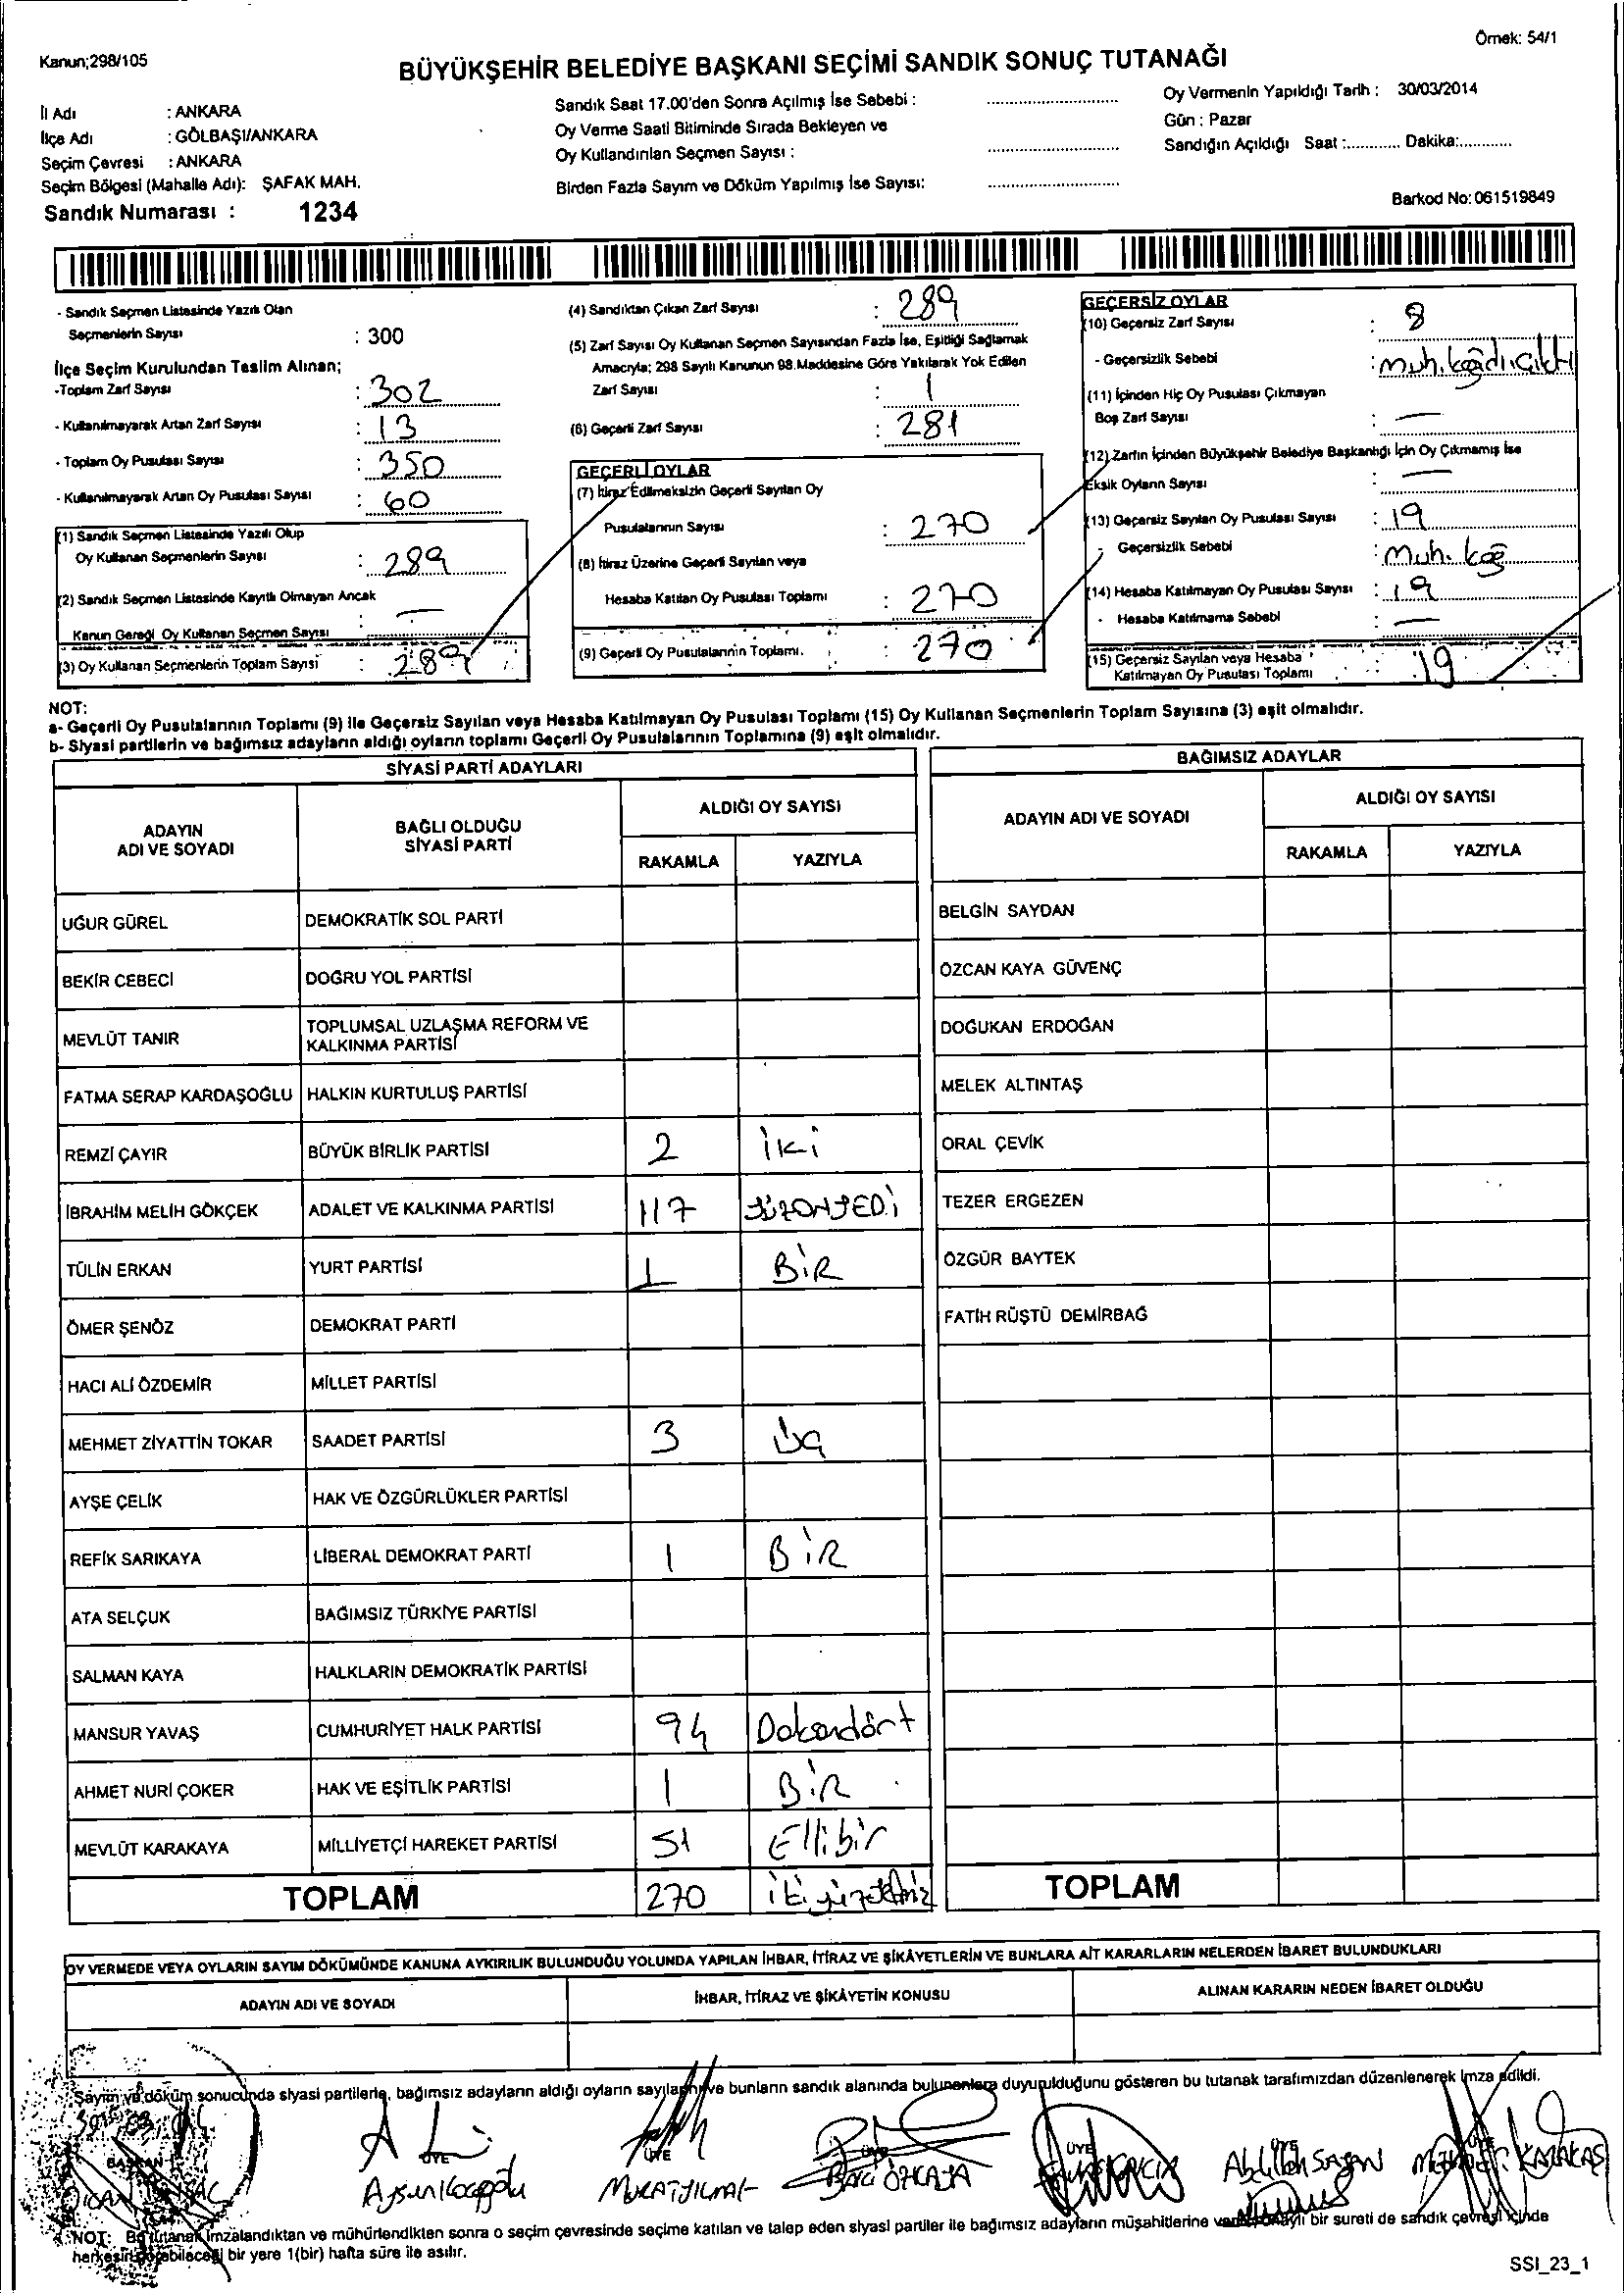 Örnek: 54/1
Kanun;298/105
BÜYÜKŞEHİR BELEDİYE BAŞKANI SEÇİMİ SANDIK SONUÇ TUTANAĞI
İl Adı : ANKARA
İlçe Adı : GÖLBAŞI/ANKARA
Seçim Çevresi : ANKARA
Seçim Bölgesi (Mahalle Adı): ŞAFAK MAH.
Sandık Numarası : 1234
Sandık Saat 17.00'den Sonra Açılmış İse Sebebi :
Oy Verme Saati Bitiminde Sırada Bekleyen ve
Oy Kullandırılan Seçmen Sayısı :
Birden Fazla Sayım ve Döküm Yapılmış İse Sayısı:
Oy Vermenin Yapıldığı Tarih : 30/03/2014
Gün : Pazar
Sandığın Açıldığı Saat :............ Dakika:............
Barkod No: 061519849
- Sandık Seçmen Listesinde Yazılı Olan
Seçmenlerin Sayısı : 300
İlçe Seçim Kurulundan Teslim Alınan;
-Toplam Zarf Sayısı : 302
- Kullanılmayarak Artan Zarf Sayısı : 13
- Toplam Oy Pusulası Sayısı : 350
- Kullanılmayarak Artan Oy Pusulası Sayısı : 60
(1) Sandık Seçmen Listesinde Yazılı Olup
Oy Kullanan Seçmenlerin Sayısı : 289
(2) Sandık Seçmen Listesinde Kayıtlı Olmayan Ancak
Kanun Gereği Oy Kullanan Seçmen Sayısı : —
(3) Oy Kullanan Seçmenlerin Toplam Sayısı : 289
(4) Sandıktan Çıkan Zarf Sayısı : 289
(5) Zarf Sayısı Oy Kullanan Seçmen Sayısından Fazla İse, Eşitliği Sağlamak
Amacıyla; 298 Sayılı Kanunun 98.Maddesine Göre Yakılarak Yok Edilen
Zarf Sayısı : 1
(6) Geçerli Zarf Sayısı : 281
GEÇERLİ OYLAR
(7) İtiraz Edilmeksizin Geçerli Sayılan Oy
Pusulalarının Sayısı : 270
(8) İtiraz Üzerine Geçerli Sayılan veya
Hesaba Katılan Oy Pusulası Toplamı : 270
(9) Geçerli Oy Pusulalarının Toplamı. : 270
GEÇERSİZ OYLAR
(10) Geçersiz Zarf Sayısı : 8
- Geçersizlik Sebebi : muh. kağıdı çıktı
(11) İçinden Hiç Oy Pusulası Çıkmayan
Boş Zarf Sayısı : —
(12) Zarfın İçinden Büyükşehir Belediye Başkanlığı İçin Oy Çıkmamış İse
Eksik Oyların Sayısı : —
(13) Geçersiz Sayılan Oy Pusulası Sayısı : 19
- Geçersizlik Sebebi : Muh. kağ
(14) Hesaba Katılmayan Oy Pusulası Sayısı : 19
- Hesaba Katılmama Sebebi : —
(15) Geçersiz Sayılan veya Hesaba
Katılmayan Oy Pusulası Toplamı : 19
NOT:
a- Geçerli Oy Pusulalarının Toplamı (9) ile Geçersiz Sayılan veya Hesaba Katılmayan Oy Pusulası Toplamı (15) Oy Kullanan Seçmenlerin Toplam Sayısına (3) eşit olmalıdır.
b- Siyasi partilerin ve bağımsız adayların aldığı oyların toplamı Geçerli Oy Pusulalarının Toplamına (9) eşit olmalıdır.
SİYASİ PARTİ ADAYLARI
ADAYIN ADI VE SOYADI BAĞLI OLDUĞU SİYASİ PARTİ ALDIĞI OY SAYISI
RAKAMLA YAZIYLA
UĞUR GÜREL DEMOKRATİK SOL PARTİ
BEKİR CEBECİ DOĞRU YOL PARTİSİ
MEVLÜT TANIR TOPLUMSAL UZLAŞMA REFORM VE KALKINMA PARTİSİ
FATMA SERAP KARDAŞOĞLU HALKIN KURTULUŞ PARTİSİ
REMZİ ÇAYIR BÜYÜK BİRLİK PARTİSİ 2 İki
İBRAHİM MELİH GÖKÇEK ADALET VE KALKINMA PARTİSİ 117 YÜZONYEDİ
TÜLİN ERKAN YURT PARTİSİ 1 BİR
ÖMER ŞENÖZ DEMOKRAT PARTİ
HACI ALİ ÖZDEMİR MİLLET PARTİSİ
MEHMET ZİYATTİN TOKAR SAADET PARTİSİ 3 Üç
AYŞE ÇELİK HAK VE ÖZGÜRLÜKLER PARTİSİ
REFİK SARIKAYA LİBERAL DEMOKRAT PARTİ 1 BİR
ATA SELÇUK BAĞIMSIZ TÜRKİYE PARTİSİ
SALMAN KAYA HALKLARIN DEMOKRATİK PARTİSİ
MANSUR YAVAŞ CUMHURİYET HALK PARTİSİ 94 Doksandört
AHMET NURİ ÇOKER HAK VE EŞİTLİK PARTİSİ 1 BİR
MEVLÜT KARAKAYA MİLLİYETÇİ HAREKET PARTİSİ 51 Ellibir
TOPLAM 270 ikiyüzyetmiş
BAĞIMSIZ ADAYLAR
ADAYIN ADI VE SOYADI ALDIĞI OY SAYISI
RAKAMLA YAZIYLA
BELGİN SAYDAN
ÖZCAN KAYA GÜVENÇ
DOĞUKAN ERDOĞAN
MELEK ALTINTAŞ
ORAL ÇEVİK
TEZER ERGEZEN
ÖZGÜR BAYTEK
FATİH RÜŞTÜ DEMİRBAĞ
TOPLAM
OY VERMEDE VEYA OYLARIN SAYIM DÖKÜMÜNDE KANUNA AYKIRILIK BULUNDUĞU YOLUNDA YAPILAN İHBAR, İTİRAZ VE ŞİKÂYETLERİN VE BUNLARA AİT KARARLARIN NELERDEN İBARET BULUNDUKLARI
ADAYIN ADI VE SOYADI İHBAR, İTİRAZ VE ŞİKÂYETİN KONUSU ALINAN KARARIN NEDEN İBARET OLDUĞU
Sayım ve döküm sonucunda siyasi partilerle, bağımsız adayların aldığı oyların sayılarını ve bunların sandık alanında bulunanlara duyurulduğunu gösteren bu tutanak tarafımızdan düzenlenerek imza edildi.
BAŞKAN ÜYE ÜYE ÜYE ÜYE ÜYE
Aysun MURAT YILMAZ ÖZKAYA KARAKAŞ
NOT: Bu tutanak imzalandıktan ve mühürlendikten sonra o seçim çevresinde seçime katılan ve talep eden siyasi partiler ile bağımsız adayların müşahitlerine bir sureti de sandık çevresi içinde
herkesin görebileceği bir yere 1(bir) hafta süre ile asılır.
SSI_23_1